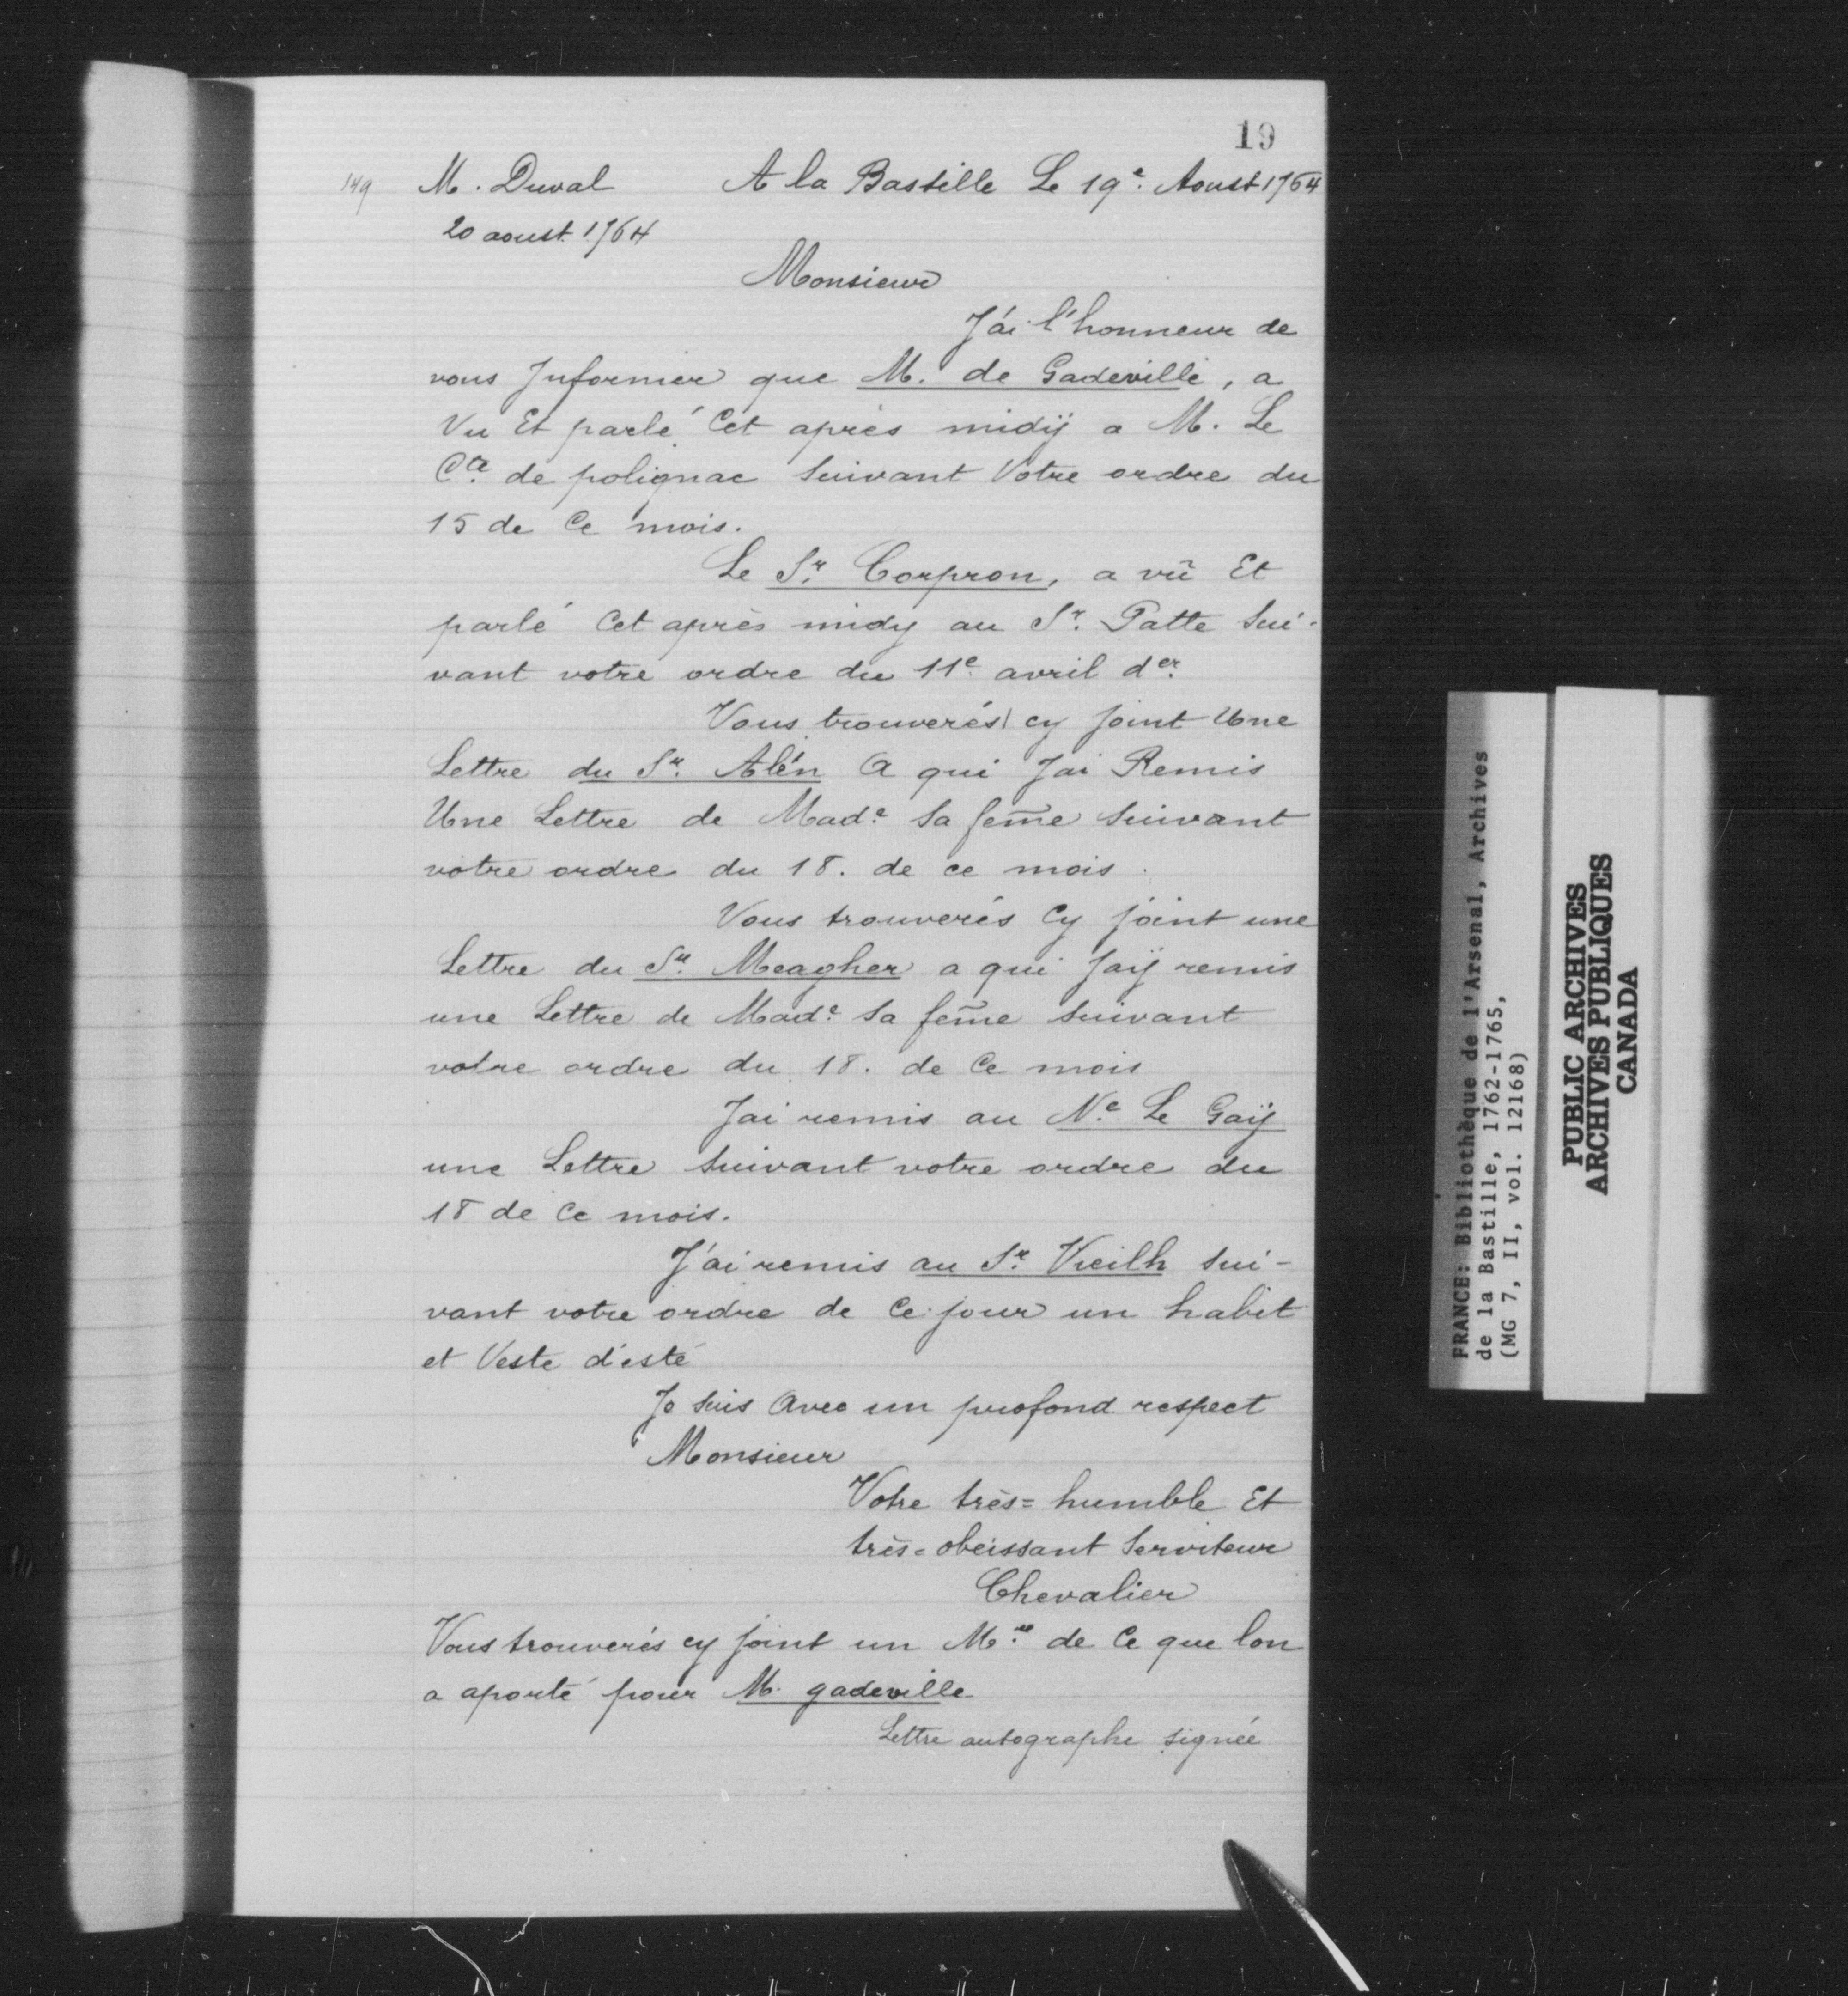 19
149 M. Duval A la Bastille Le 19e. Aoust 1764
20 aoust 1764
Monsieur
J'ai l'honneur de
vous Informer que M. de Gadeville, a
Vu Et parlé Cet après midÿ a M. Le
Cte. de polignac Suivant Votre ordre du
15 de Ce mois.
Le Sr. Corpron, a vû Et
parlé Cet après midy au Sr. Patte Sui-
vant votre ordre du 11e. avril der.
Vous trouverés cy joint Une
Lettre du Sr. Alén A qui Jai Remis
Une Lettre de Made. Sa fem̃e Suivant
votre ordre du 18. de ce mois.
Vous trouverés Cy joint une
Lettre du Sr. Meagher a qui Jaÿ remis
une Lettre de Made. Sa fem̃e Suivant
votre ordre du 18. de Ce mois
Jai remis au Ne. Le Gaÿ
une Lettre Suivant votre ordre du
18 de Ce mois.
J'ai remis au Sr. Vieilh Sui-
vant votre ordre de Ce jour un habit
et Veste d'esté
Je Suis Avec un profond respect
Monsieur
Votre très=humble Et
très=obeissant Serviteur
Chevalier
Vous trouverés cy joint un Mre. de Ce que lon
a aporté pour M. gadeville
Lettre autographe signée
FRANCE: Bibliothèque de l'Arsenal, Archives
de la Bastille, 1762-1765,
(MG 7, II, vol. 12168)
PUBLIC ARCHIVES
ARCHIVES PUBLIQUES
CANADA